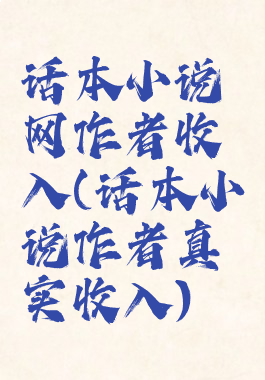 话本小说
网作者收
入(话本小
说作者真
实收入)